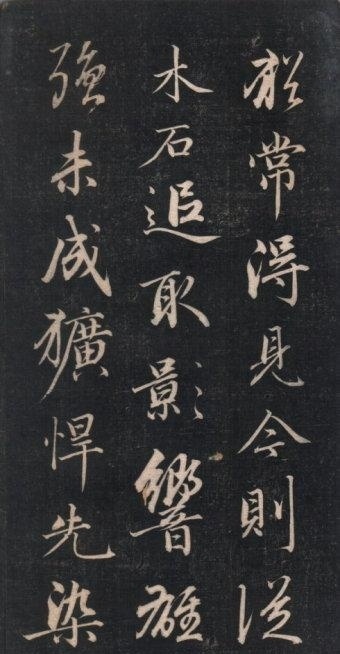 猶常得見今則從
木石追取影響雄
強未成獷悍先染